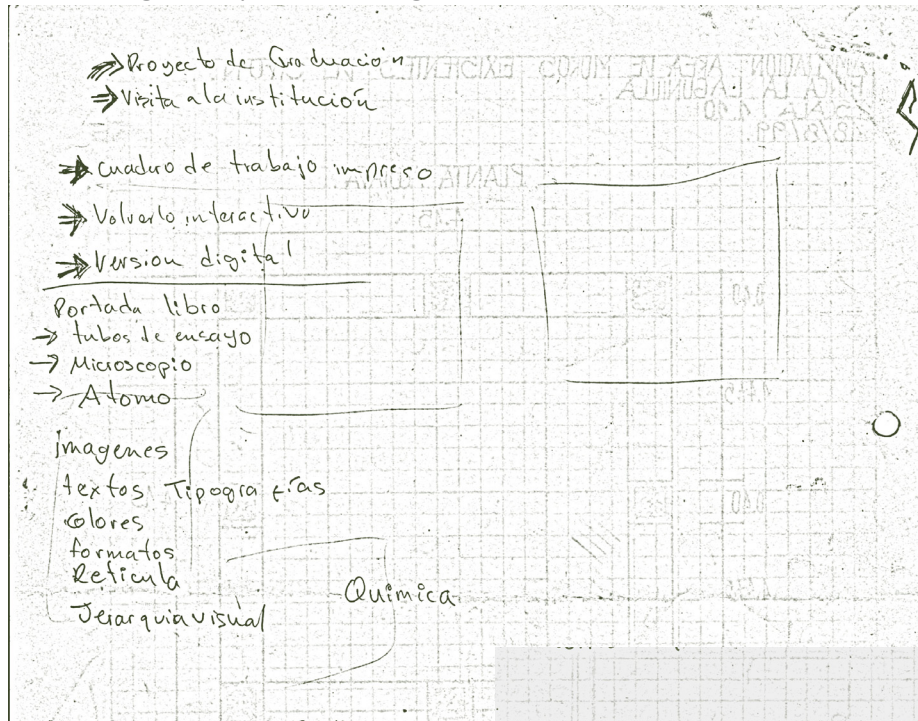 ⇒ Proyecto de Graduación
⇒ Visita a la institución
⇒ Cuadro de trabajo impreso
⇒ Volverlo interactivo
⇒ Version digital
Portada libro
→ tubos de ensayo
→ Microscopio
→ Atomo
imagenes
textos Tipografías
Colores
formatos
Reticula
Jerarquia visual
Quimica